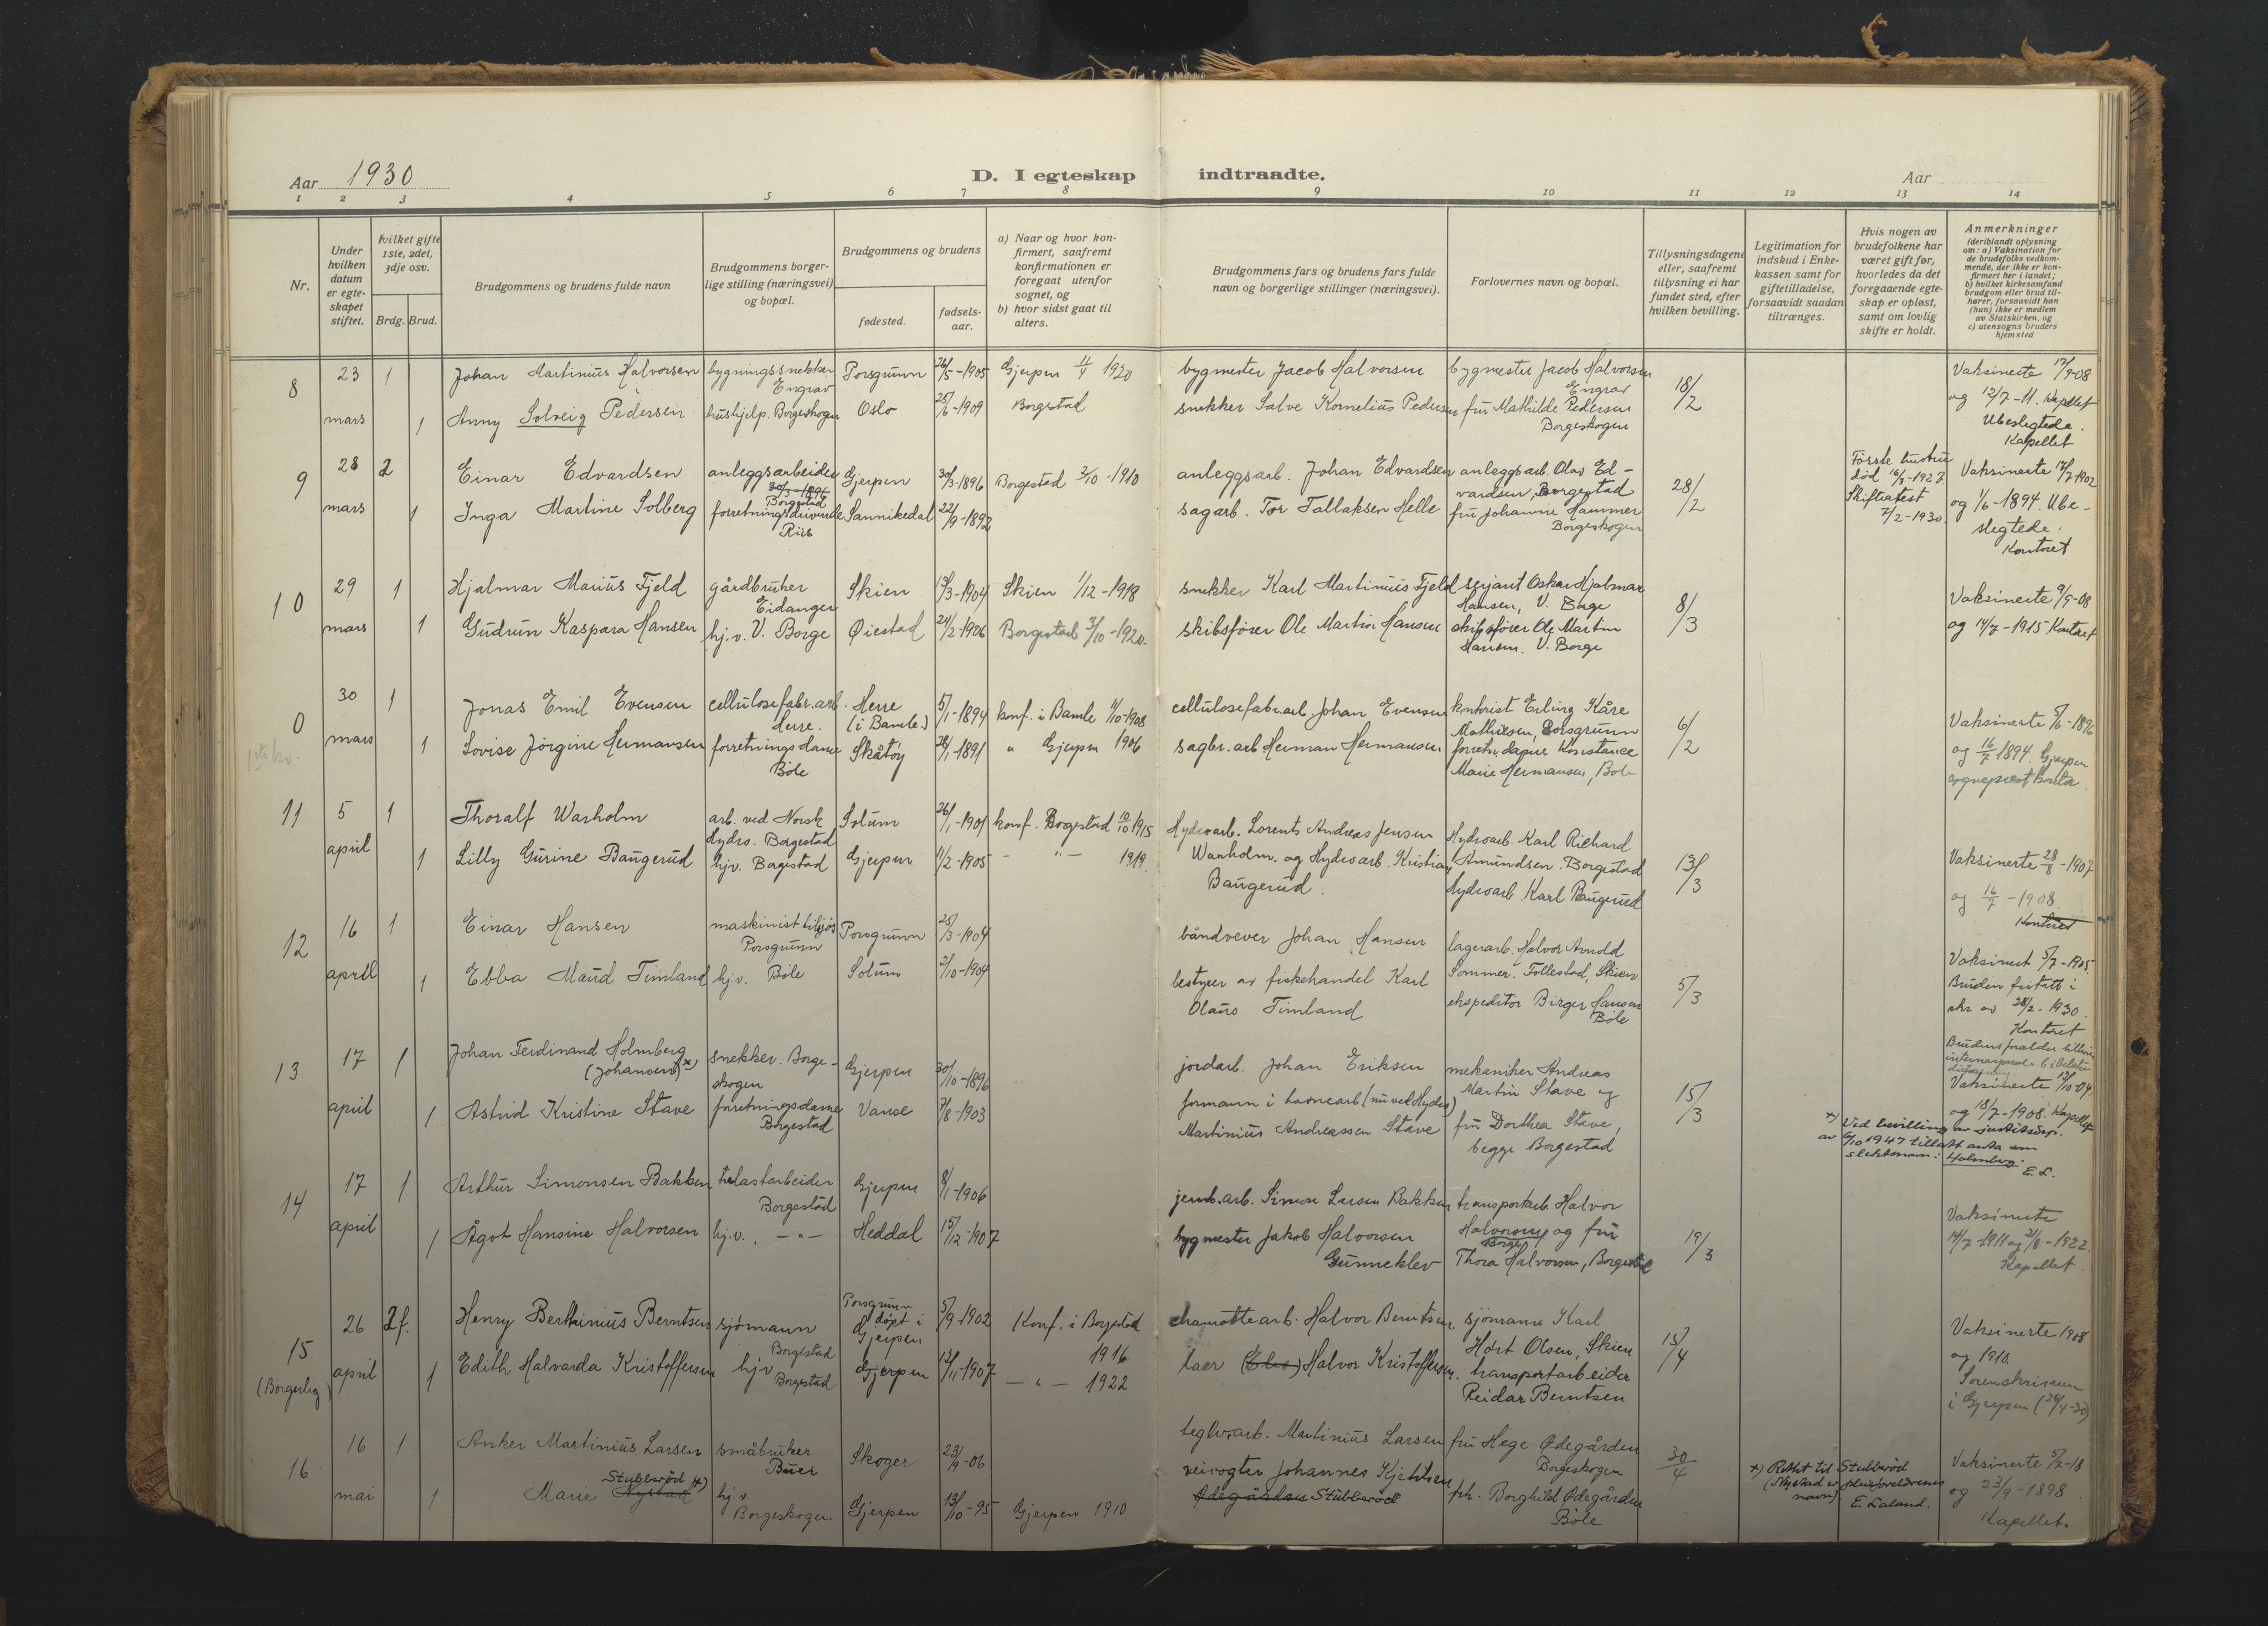 Aar 1930
D. I egteskap indtraadte.
Aar
1 2 3 4 5 6 7 8 9 10 11 12 13 14
Nr.
Under hvilken datum er egteskapet stiftet.
Hvilket gifte 1ste, 2det, 3dje osv.
Brdg. Brud.
Brudgommens og brudens fulde navn
Brudgommens borgerlige stilling (næringsvei) og bopæl.
Brudgommens og brudens
fødested.
fødselsaar.
a) Naar og hvor konfirmert, saafremt konfirmationen er foregaat utenfor sognet, og
b) hvor sidst gaat til alters.
Brudgommens fars og brudens fars fulde navn og borgerlige stillinger (næringsvei).
Forlovernes navn og bopæl.
Tillysningsdagene eller, saafremt tillysning ei har fundet sted, efter hvilken bevilling.
Legitimation for indskud i Enkekassen samt for giftetilladelse, forsaavidt saadan tiltrænges.
Hvis nogen av brudefolkene har været gift før, hvorledes da det foregaaende egteskap er opløst, samt om lovlig skifte er holdt.
Anmerkninger
(deriblandt oplysning om: a) Vaksination for de brudefolks vedkommende, der ikke er konfirmert her i landet;
b) hvilket kirkesamfund brudgom eller brud tilhører, forsaavidt han (hun) ikke er medlem av Statskirken, og
c) utensogns bruders hjemsted
8 23 mars 1 Johan Martinius Halvorsen bygningssnekker Engrav Porsgrunn 26/5-1905 Gjerpen 11/4 1920 bygmester Jacob Halvorsen bygmester Jacob Halvorsen Engrav 18/2 Vaksinerte
1 Anny Solveig Pedersen hushjelp. Borgeskogen Oslo 25/6-1909 Borgestad snekker Salve Kornelius Pedersen fru Mathilde Pedersen Borgeskogen og 12/7-11. Kapellet
Ubeslegtede.
Kapellet
9 28 mars 2 Einar Edvardsen anleggsarbeider 30/3-1896 Borgestad Gjerpen 30/3-1896 Borgestad 2/10-1910 anleggsarb. Johan Edvardsen anleggsarb. Olav Edvardsen, Borgestad 28/2 Første hustru død 16/3-1927. Skifteatest 7/2-1930. Vaksinerte 17/7-1902
1 Inga Martine Solberg forretningsdrivende Riis Sannikedal 22/9-1892 sagarb. Tor Tallaksen Helle fru Johanne Hammer Borgeskogen og 1/6-1894. Ubeslegtede.
Kontoret
10 29 mars 1 Hjalmar Marius Fjeld gårdbruker Eidanger Skien 13/3-1904 Skien 1/12-1918 snekker Karl Martinius Fjeld serjant Oskar Hjalmar Hansen, V. Borge 8/3 Vaksinerte 9/9-08
1 Gudrun Kaspara Hansen hj.v. V. Borge Øiestad 24/2-1906 Borgestad 3/10-1920. skibsfører Ole Martin Hansen skibsfører Ole Martin Hansen. V. Borge og 14/7-1915. Kontoret
0 30 mars 1 Jonas Emil Evensen cellulosefabr.arb. Herre. Herre (i Bamle.) 5/1-1894 konf. i Bamle 4/10-1908 cellulosefabr.arb. Johan Evensen kontorist Erling Kåre Mathisen, Porsgrunn 6/2 Vaksinerte 5/6-1896
1 Lovise Jørgine Hermansen forretningsdame Böle Skåtöy 28/1-1891 " Gjerpen 1906 sagbr.arb Herman Hermansen forretn.dame Konstance Marie Hermansen, Böle og 16/7 1894. Gjerpen
11 5 april 1 Thoralf Warholm arb. ved Norsk Hydro. Borgestad Solum 26/1-1901 konf. Borgestad 10/10 1915 Hydroarb. Lorents Andreas Jensen Hydroarb. Karl Richard Amundsen. Borgestad 13/3 Vaksinerte 28/8-1907
1 Lilly Gurine Baugerud hjv. Borgestad Gjerpen 11/2-1905 - " - 1919. Warholm. og Hydroarb. Kristian Baugerud. Hydroarb. Karl Baugerud og 16/7-1908.
Kontoret
12 16 april 1 Einar Hansen maskinist tilsjøs Porsgrunn Porsgrunn 25/3-1904 båndvever Johan Hansen lagerarb. Halvor Arnold Sommer. Follestad, Skien 5/3 Vaksinert 5/7-1905.
1 Ebba Maud Timland hj.v. Böle Solum 2/10-1904 bestyrer av fiskehandel Karl Olaus Timland ekspeditør Birger Hansen Böle Bruden fritatt i skr av 28/2-1930.
Kontoret
13 17 april 1 Johan Ferdinand Holmberg (Johansen) x) snekker. Borgeskogen Gjerpen 30/10-1896 jordarb. Johan Eriksen mekaniker Andreas Martin Stave og 15/3 Vaksinerte 12/10-04
1 Astrid Kristine Stave forretningsdame Borgestad Vanse 7/8-1903 formann i havnearb (nu ved Hydro) Martinius Andreassen Stave fru Dorthea Stave, begge Borgestad og 18/7-1908. Kapellet
x) Ved bevilling av justitsdep.
av 6/10 1947 tillatt anta som
slektsnavn: Holmberg.
E. L.
14 17 april 1 Arthur Simonsen Bakken trelastarbeider Borgestad Gjerpen 8/1-1906 jernb.arb. Simon Larsen Bakken transportarb. Halvor Halvorsen Borge og fru 19/3 Vaksinerte
1 Ågot Hansine Halvorsen hj.v. - " - Heddal 15/12-1907 bygmester Jakob Halvorsen Gunneklev Thora Halvorsen, Borgestad 14/7-1911 og 21/8-1922.
Kapellet.
15 (Borgerlig) 26 april 2 f. Henry Berthinius Berntsen sjømann Borgestad Porsgrunn døpt i Gjerpen 5/9-1902 Konf. i Borgestad 1916 chamottearb. Halvor Berntsen. sjømann Karl Hort Olsen, Skien 15/4 Vaksinerte 1908
1 Edith Halvarda Kristoffersen hjv Borgestad Gjerpen 12/11-1907 - " - 1922 Halvor Kristoffersen. transportarbeider Reidar Berntsen og 1910.
Sorenskriveren
i Gjerpen (26/4-30)
16 16 mai 1 Anker Martinius Larsen småbruker Buer Skoger 23/9-06 teglv.arb. Martinius Larsen fru Hege Ødegården Borgeskogen 30/4 x) Rettet til Stubberød (Nystad er pleieforeldrenes navn). E. Laland. Vaksinerte 5/7-18
1 Marie Nystad Stubberød x) hj.v. Borgeskogen. Gjerpen 13/10-95 Gjerpen 1910 veivogter Johannes Kjetilsen Ødegården Stubberød frk. Borghild Ødegården Böle og 23/9-1898.
Kapellet.